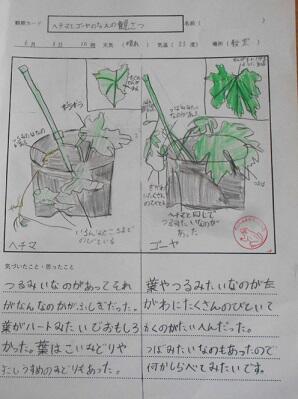 観察カード ヘチマとゴーヤのなえの観さつ 名前( )
6月 日 10時 天気(晴れ) 気温(23度) 場所(教室)
つるみたいなのがある
つぼみみたいなのがある
ヘチマと同じで
つるみたいなのが
あった
いろんなところまで
のびている
ヘチマ
ゴーヤ
気づいたこと・思ったこと
つるみたいなのがあってそれ
がなんなのかがふしぎだった。
葉がハートみたいでおもしろ
かった。葉はこいみどりや
すこしうすめのみどりもあった。
葉やつるみたいなのが左
がわにたくさんのびていて
かくのがたいへんだった。
つぼみたいなのもあったので
何かしらべてみたいです。